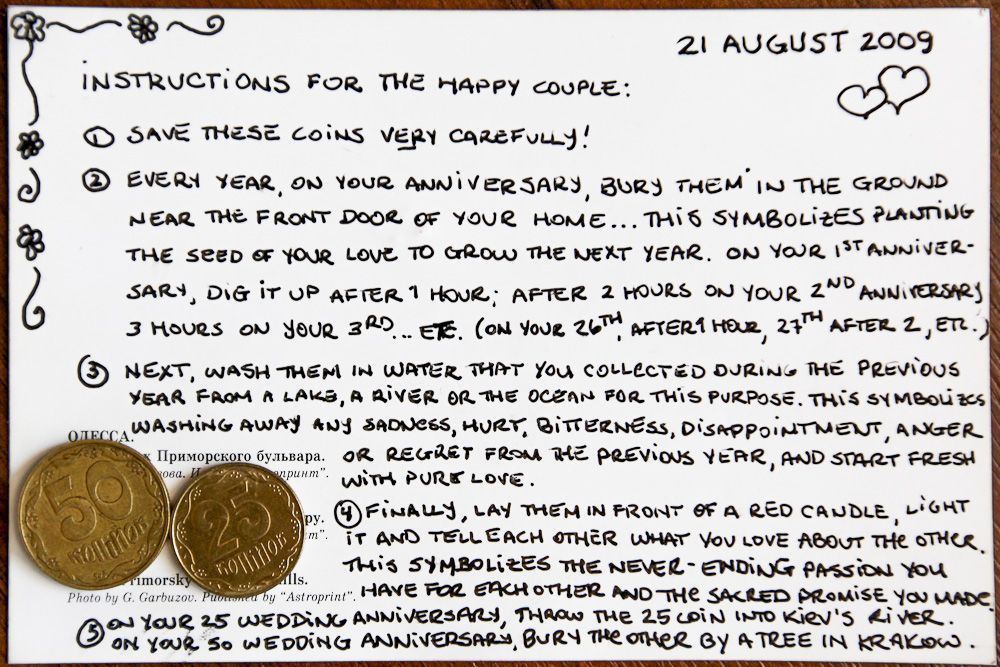 21 AUGUST 2009
INSTRUCTIONS FOR THE HAPPY COUPLE:
① SAVE THESE COINS VERY CAREFULLY!
② EVERY YEAR, ON YOUR ANNIVERSARY, BURY THEM IN THE GROUND
NEAR THE FRONT DOOR OF YOUR HOME... THIS SYMBOLIZES PLANTING
THE SEED OF YOUR LOVE TO GROW THE NEXT YEAR. ON YOUR 1ST ANNIVER-
SARY, DIG IT UP AFTER 1 HOUR; AFTER 2 HOURS ON YOUR 2ND ANNIVERSARY
3 HOURS ON YOUR 3RD... ETC. (ON YOUR 26TH, AFTER 1 HOUR, 27TH AFTER 2, ETC.)
③ NEXT, WASH THEM IN WATER THAT YOU COLLECTED DURING THE PREVIOUS
YEAR FROM A LAKE, A RIVER OR THE OCEAN FOR THIS PURPOSE. THIS SYMBOLIZES
WASHING AWAY ANY SADNESS, HURT, BITTERNESS, DISAPPOINTMENT, ANGER
OR REGRET FROM THE PREVIOUS YEAR, AND START FRESH
WITH PURE LOVE.
④ FINALLY, LAY THEM IN FRONT OF A RED CANDLE, LIGHT
IT AND TELL EACH OTHER WHAT YOU LOVE ABOUT THE OTHER.
THIS SYMBOLIZES THE NEVER-ENDING PASSION YOU
HAVE FOR EACH OTHER AND THE SACRED PROMISE YOU MADE.
⑤ ON YOUR 25 WEDDING ANNIVERSARY, THROW THE 25 COIN INTO KIEV'S RIVER.
ON YOUR 50 WEDDING ANNIVERSARY, BURY THE OTHER BY A TREE IN KRAKOW.
ОДЕССА.
Приморского бульвара.
Primorsky
Photo by G. Garbuzov. Published by "Astroprint".
50
КОПІЙОК
25
КОПІЙОК